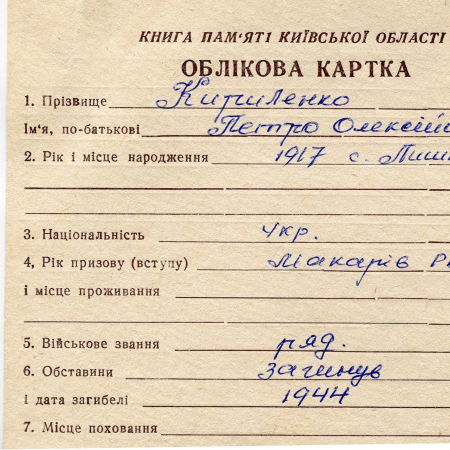 КНИГА ПАМ'ЯТІ КИЇВСЬКОЇ ОБЛАСТІ
ОБЛІКОВА КАРТКА
1. Прізвище Кириленко
Ім'я, по-батькові Петро Олексій
2. Рік і місце народження 1917 с.
3. Національність Укр.
4, Рік призову (вступу) Макарів
і місце проживання
5. Військове звання ряд.
6. Обставини загинув
і дата загибелі 1944
7. Місце поховання